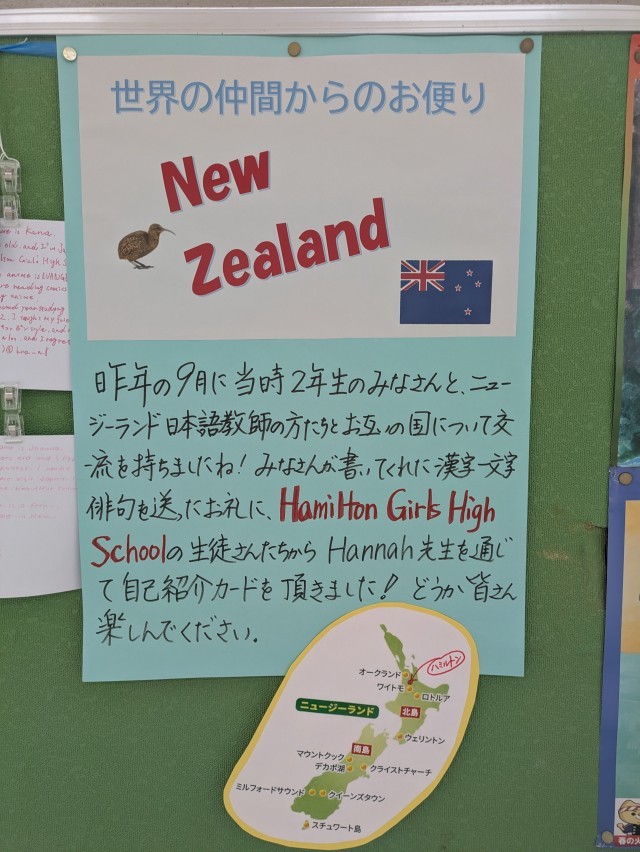 世界の仲間からのお便り
New
Zealand
昨年の9月に当時2年生のみなさんと、ニュー
ジーランド日本語教師の方たちとお互いの国について交
流を持ちましたね！みなさんが書いてくれた漢字一文字
俳句を送ったお礼に、Hamilton Girls High
Schoolの生徒さんたちから Hannah先生を通じ
て自己紹介カードを頂きました！どうか皆さん
楽しんでください。
ハミルトン
オークランド
ワイトモ
ロトルア
ニュージーランド
北島
ウェリントン
南島
マウントクック
テカポ湖
クライストチャーチ
ミルフォードサウンド
クイーンズタウン
スチュワート島